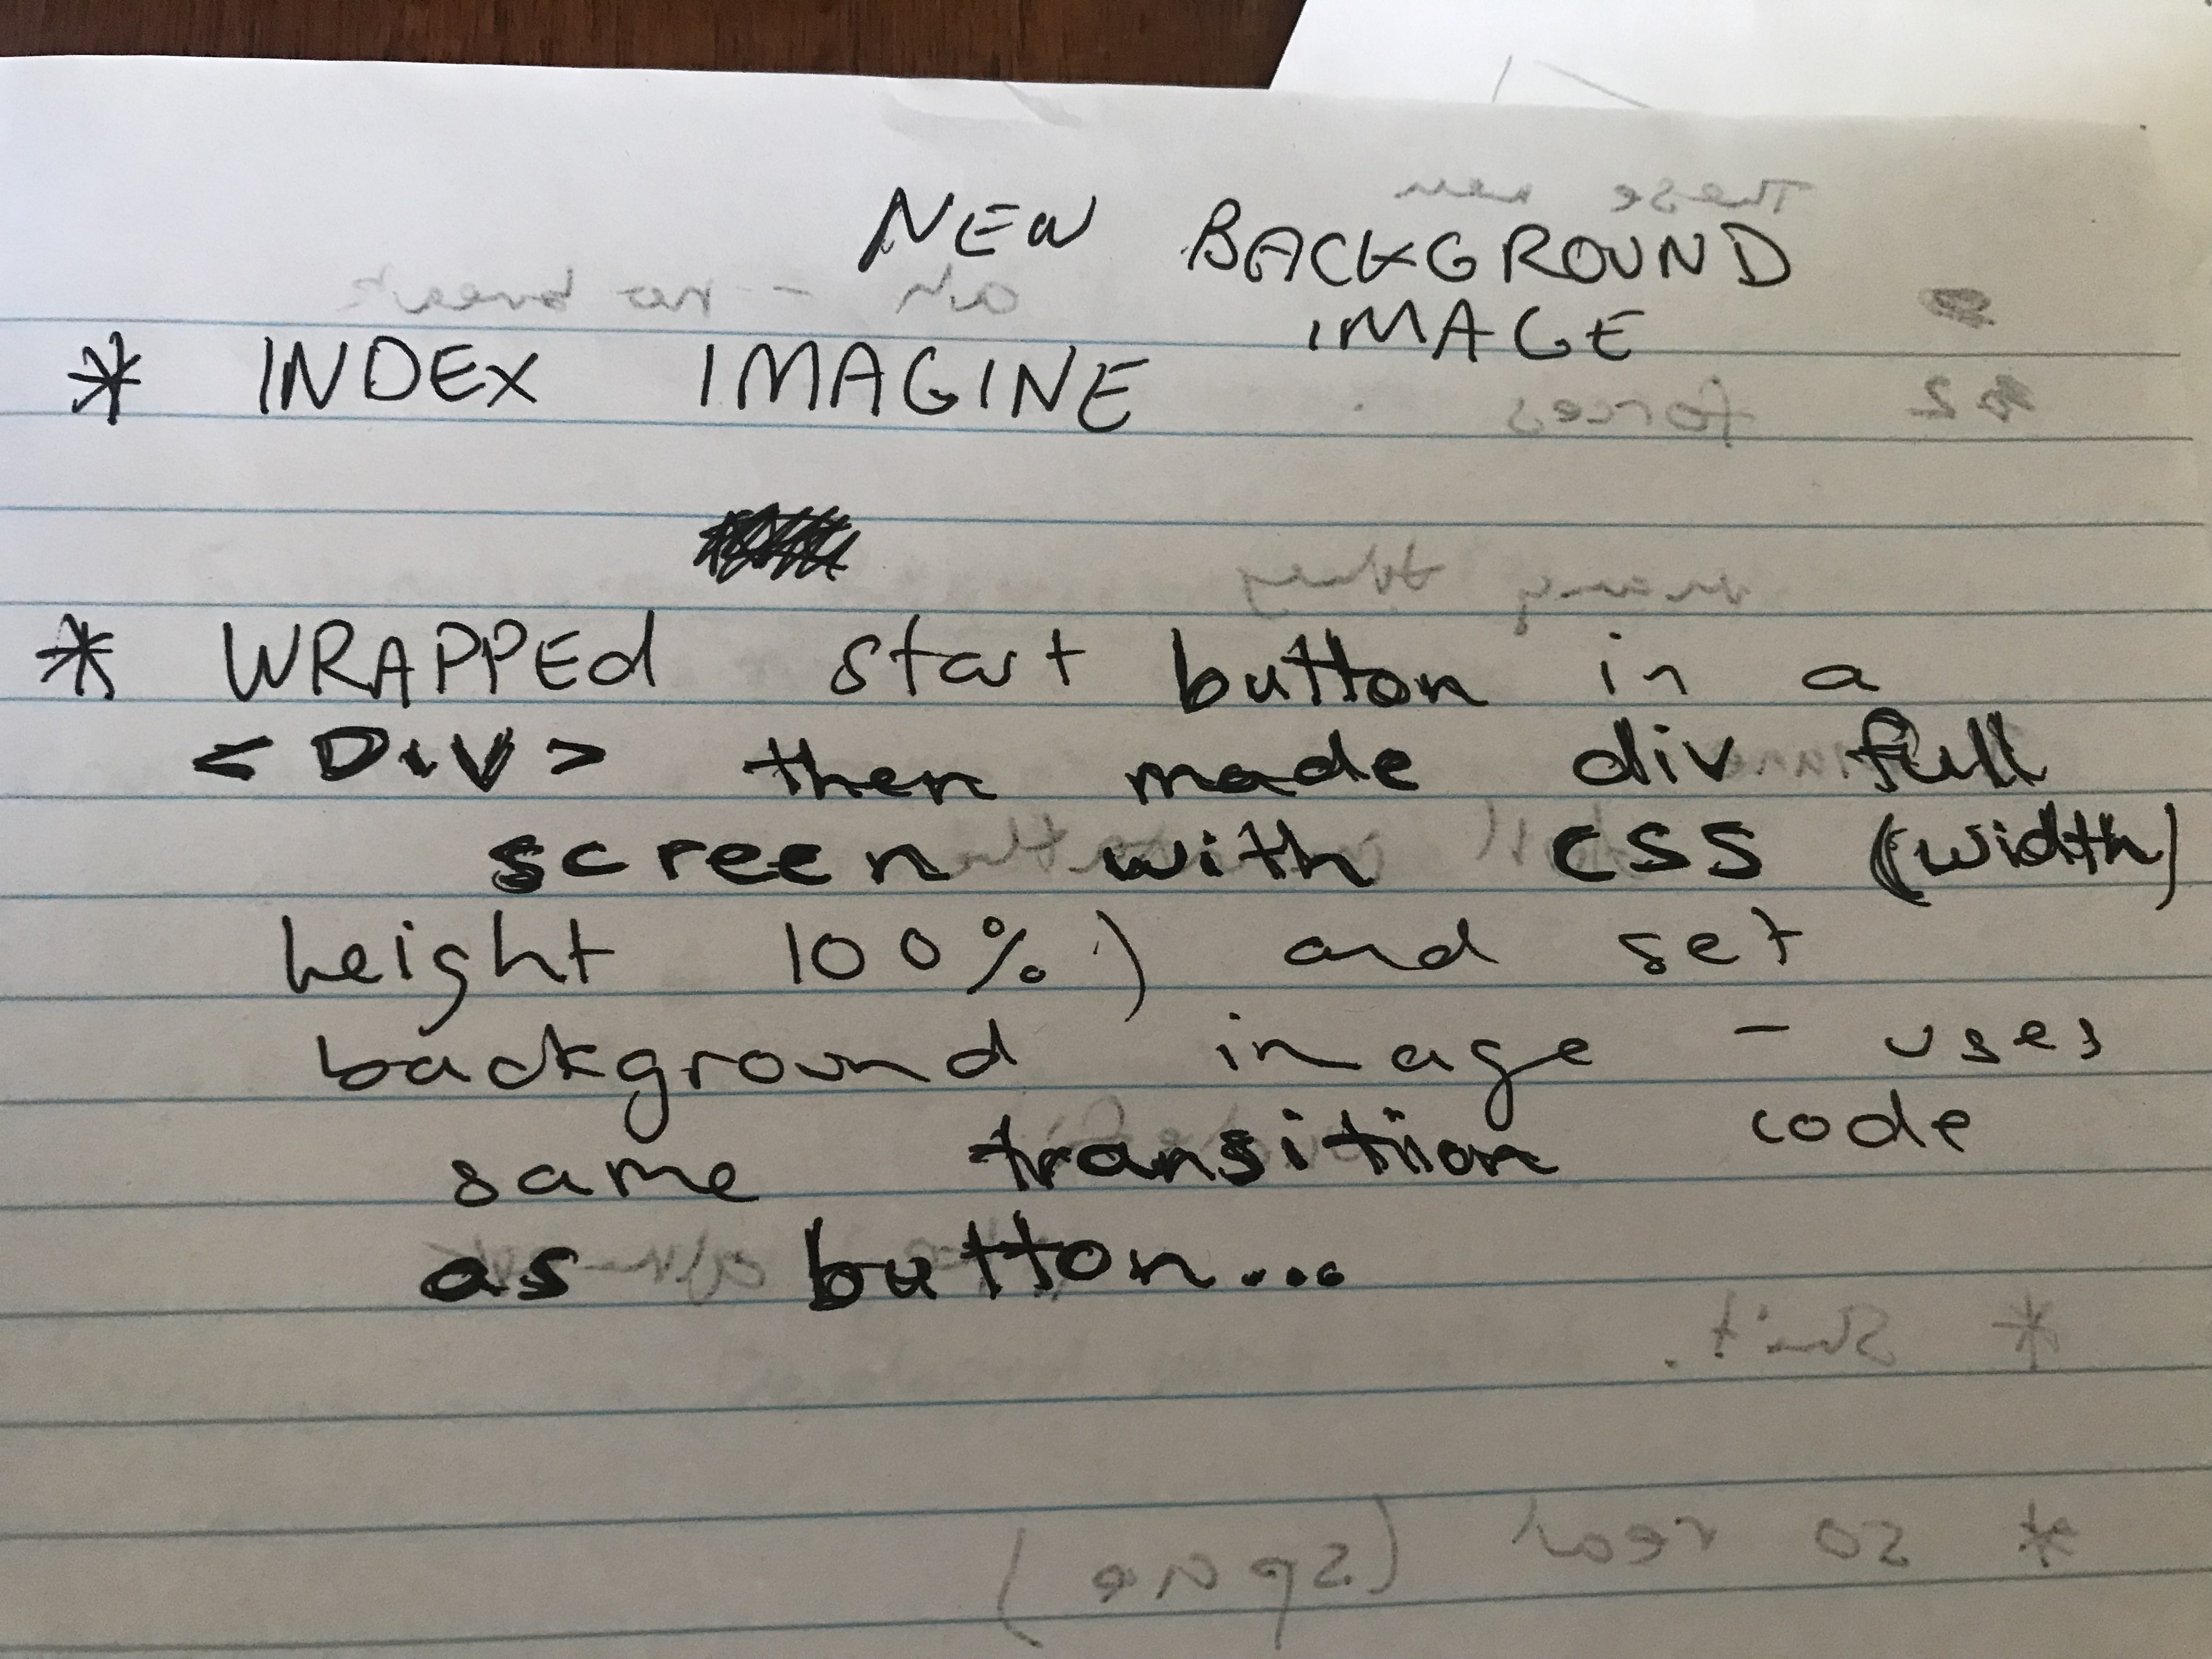 NEW BACKGROUND
IMAGE
* INDEX IMAGINE
* WRAPPED start button in a
<DIV> then made div full
screen with CSS (width)
height 100%;) and set
background image - uses
same transition code
as button...